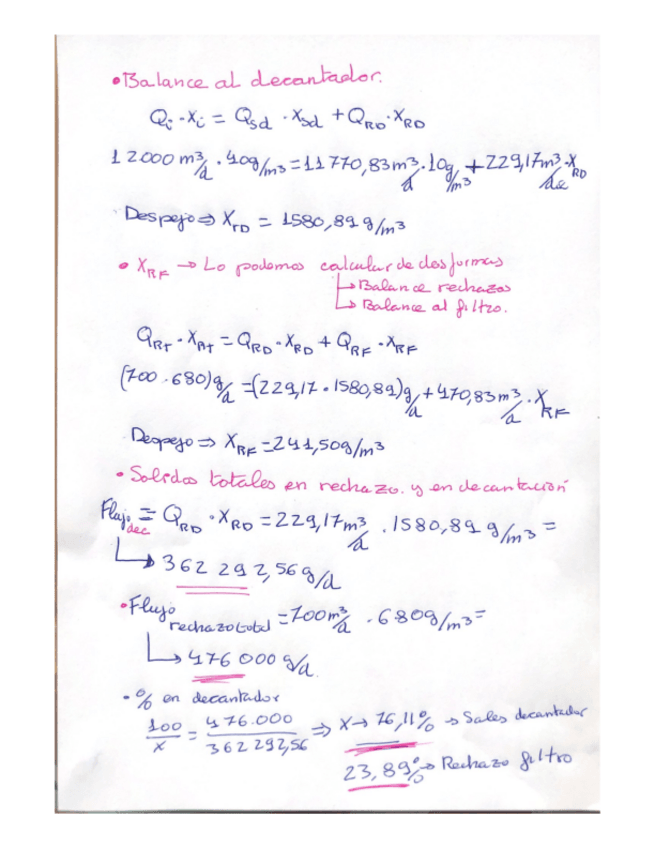 • Balance al decantador.
Qi · Xi = Qsd · Xsd + QRD · XRD
12000 m³/d · 40g/m³ = 11770,83 m³/d · 10g/m³ + 229,17m³/d · XRD
Despejo ⇒ XrD = 1580,89 g/m³
• XRF → Lo podemos calcular de dos formas
↳ Balance rechazos
↳ Balance al filtro.
QRT · XRT = QRD · XRD + QRF · XRF
(700 · 680)g/d = (229,17 · 1580,89)g/d + 470,83 m³/d · XRF
Despejo ⇒ XRF = 241,50g/m³
• Solidos totales en rechazo. y en decantación
Flujo dec = QRD · XRD = 229,17m³/d · 1580,89 g/m³ =
↳ 362 292,56 g/d
• Flujo rechazo total = 700m³/d · 680g/m³ =
↳ 476 000 g/d.
• % en decantador
100/x = 476.000/362292,56 ⇒ X → 76,11% → Sales decantador
23,89% → Rechazo filtro